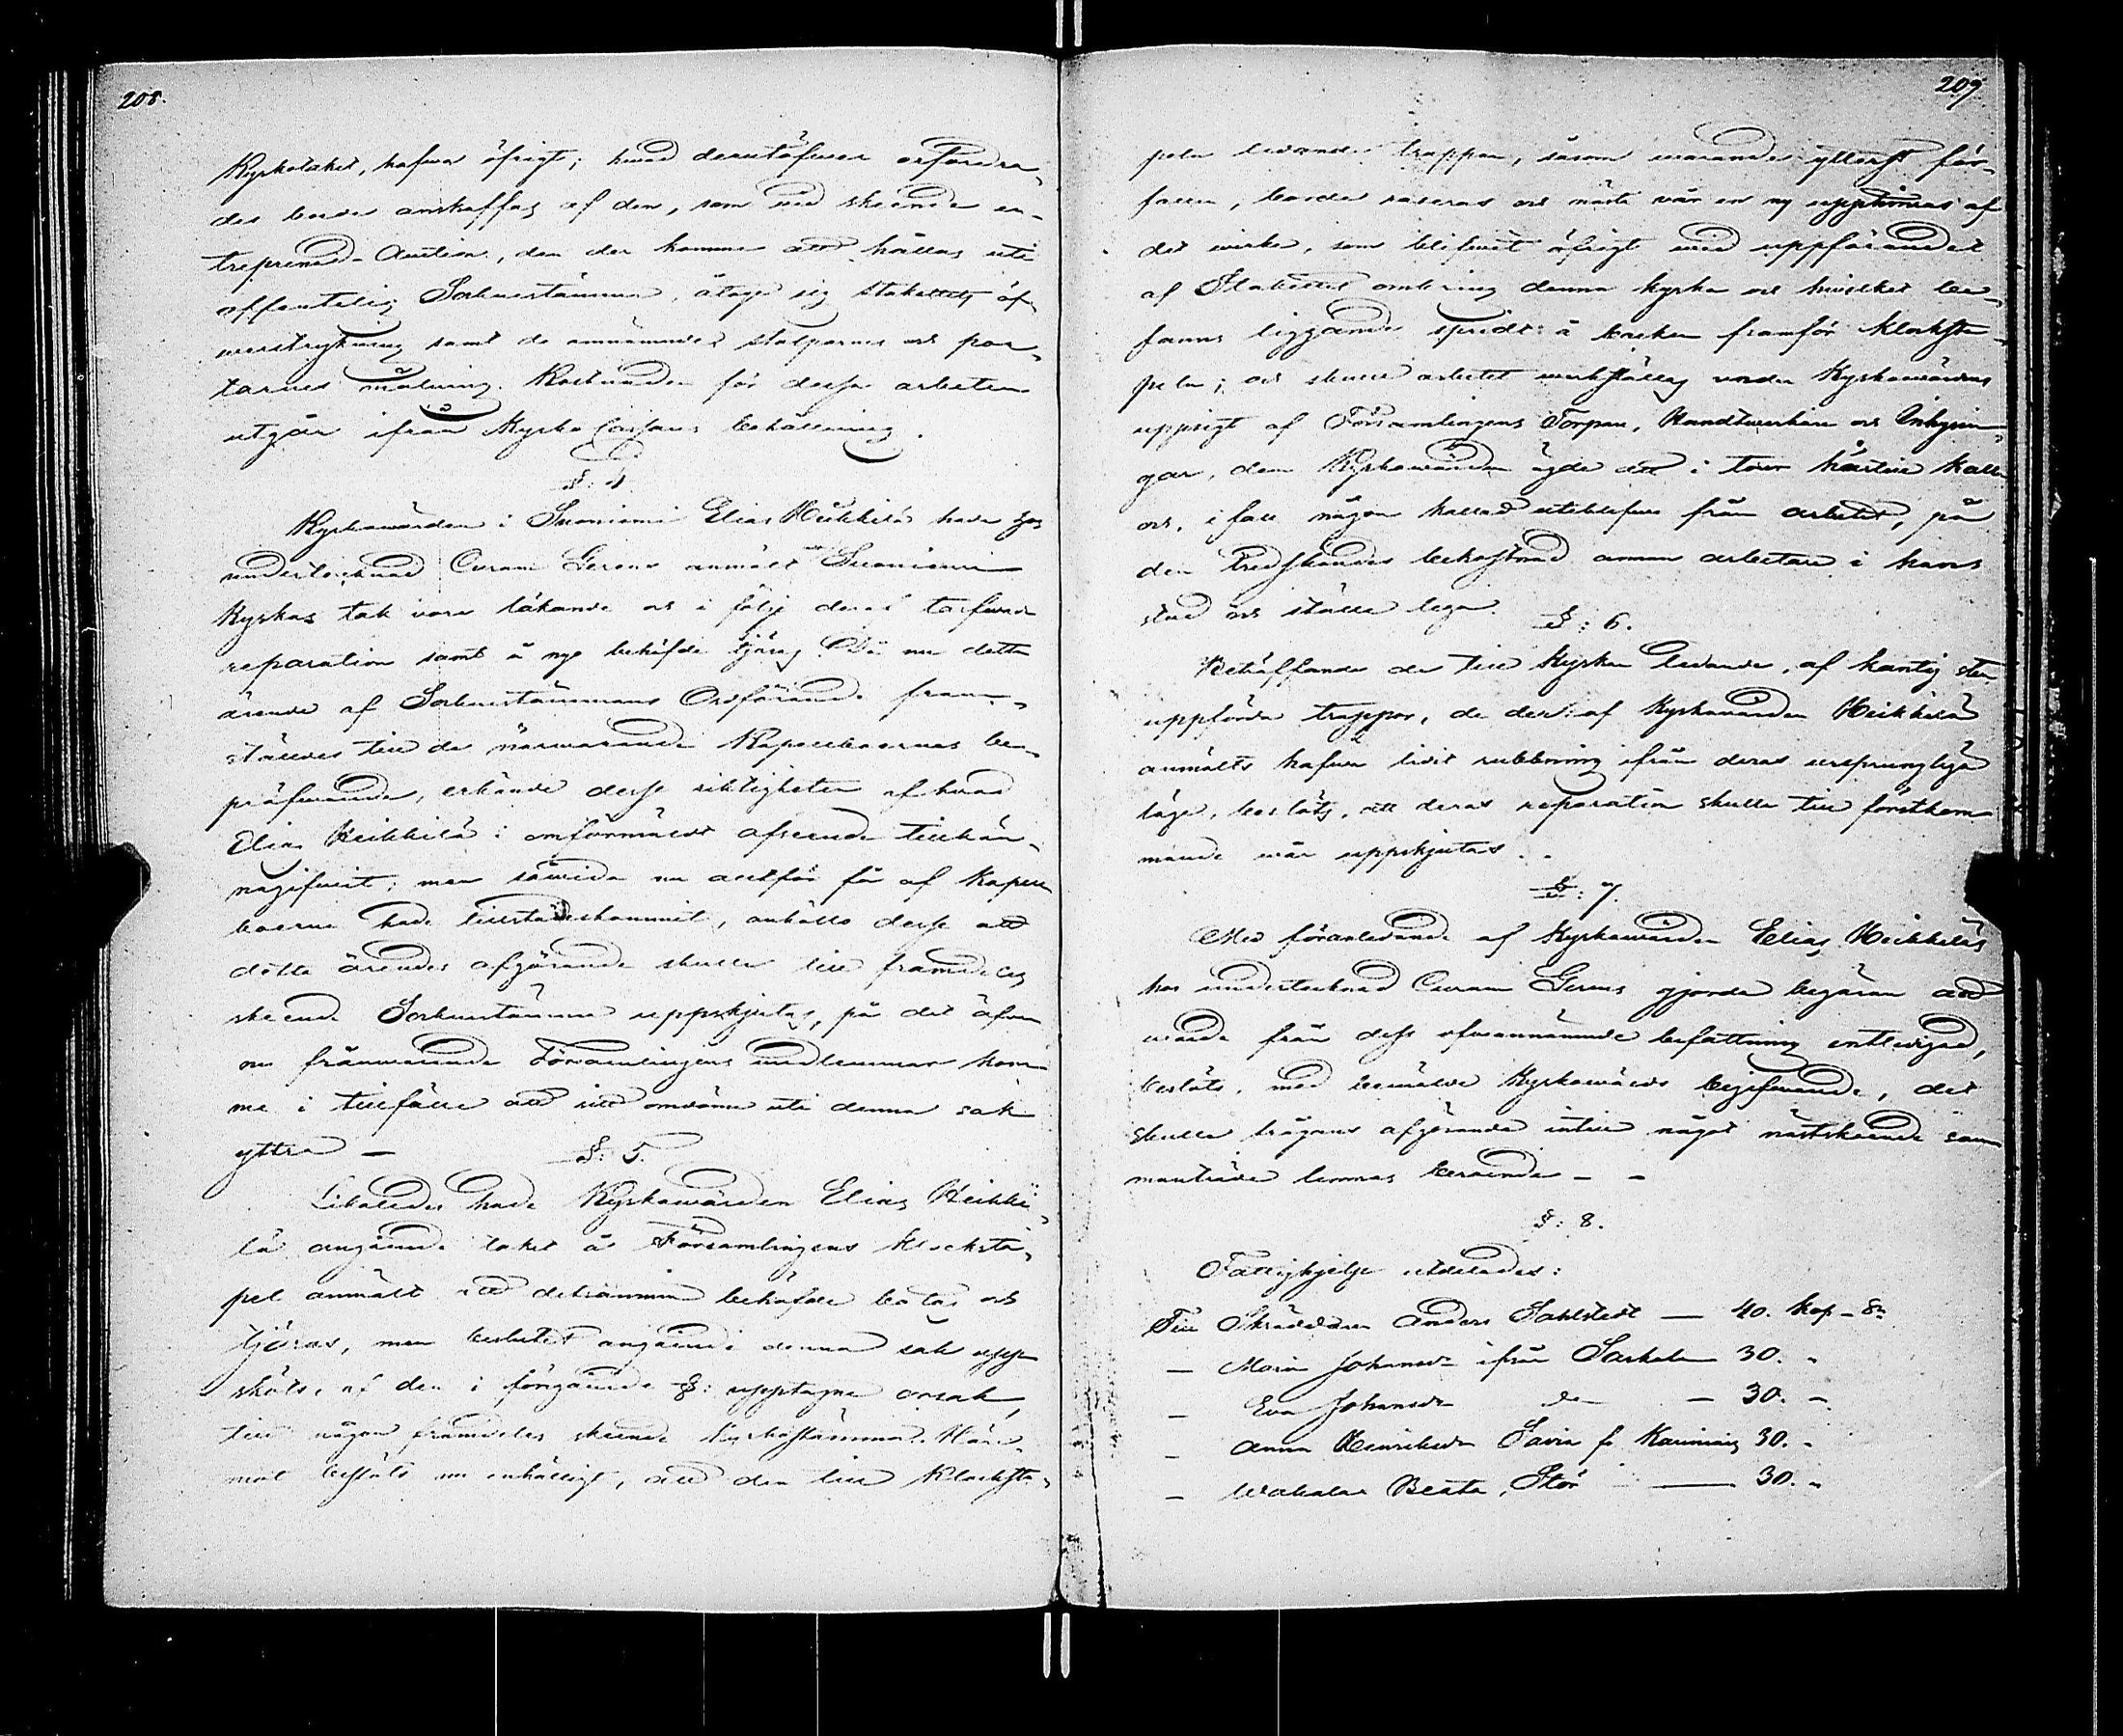 208.
Kyrkotaket, hafwa öfrigt; hwad derutöfwer erfordra-
des borde anskaffas af den, som wid skeende en-
treprenad-Auction, den der komme att hållas uti
offentelig Sockenstämma, åtoge sig staketets öf-
werstrykning samt de omnämnde stolparnes och por-
tarnes målning. Kostnaden för desse arbeten
utgår ifrån Kyrko Cassans behållning.
§: 4.
Kyrkowärden i Suoniemi Elias Heikkilä hade hos
undertecknad Curam Gerens anmält att Suoniemi
Kyrkas tak wore läkande och i följe deraf tarfwade
reparation samt å nyo behöfde tjäras. Då nu detta
ärende af Sockenstämmans Ordförande fram-
ställdes till de närwarande Kapellboernas be-
pröfwande, erkände desse riktigheten af hwad
Elias Heikkilä i omförmäldt afseende tillkän-
nagifwit; men såwida nu alltför få af Kapell-
boerne hade tillstädeskommit, anhöllo desse att
detta ärendes afgörande skulle till framdeles
skeende Sockenstämma uppskjutas, på det äfwen
nu frånwarande Församlingens medlemmar kom-
me i tillfälle att sitt omdöme uti denna sak
yttra —
§: 5.
Likaledes hade Kyrkowärden Elias Heikki-
lä angående taket å Församlingens klocksta-
pel anmält att detsamma behöfde botas och
tjäras, men beslutet angående denna sak upp-
sköts, af den i föregående §: upptagne orsak,
till någon framdeles skeende Kyrkostämma. Här-
mot beslöts nu enhälligt, att den till Klocksta-
209
peln ledande trappan, såsom warande ytterst för-
fallen, borde raseras och nästa wår en ny upptimras af
det wirke, som blifwit öfrigt wid uppförandet
af Staketet omkring denna kyrka och hwilket be-
fanns liggande spridt å backen framför klocksta-
peln; och skulle arbetet werkställas under Kyrkowärdens
uppsigt af Församlingens Torpare, Handtwerkare och Inhysin-
gar, dem Kyrkowärden ägde att i tour härtill kalla
och, ifall någon kallad uteblefwe från arbetet, på
den tredskandes bekostnad annan arbetare i hans
stad och ställe lega.
§: 6.
Beträffande de till kyrkan ledande, af kantig sten
uppförda trappor, de der af Kyrkowärden Heikkilä
anmälts hafwa lidit rubbning ifrån deras ursprungliga
läge, beslöts, att deras reparation skulle till förstkom-
mande wår uppskjutas..
§: 7.
Med föranledande af Kyrkowärden Elias Heikkiläs
hos undertecknad Curam Gerens gjorde begäran att
warda från dess ofwannämnde befattning entledigad,
beslöts, med bemälde Kyrkowärds begifwande, det
skulle frågans afgörande intill något nästskeende sam-
manträde lemnas beroende — —
§: 8.
Fattighjelp utdelades:
Till Skräddaren Anders Sahlstedt — 40. kop. Sr
— Maria Johansdr ifrån Sarkola 30. "
— Eva Johansdr do — 30. "
— Anna Henriksdr Savia fr Karimäis 30. "
— Beata Stör — 30. "